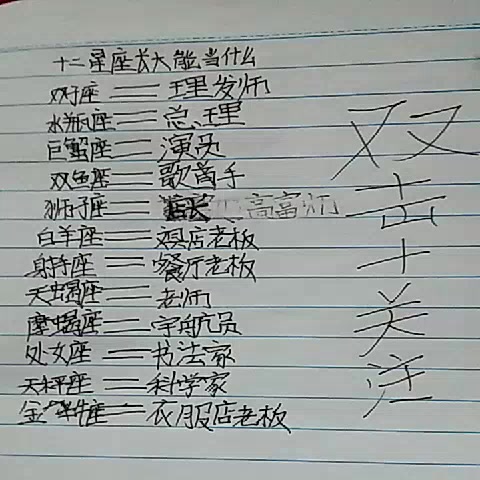 十二星座长大能当什么
双子座——理发师
水瓶座——总理
巨蟹座——演员
双鱼座——歌唱手
狮子座——高富帅
白羊座——酒店老板
射手座——餐厅老板
天蝎座——老师
摩蝎座——宇航员
处女座——书法家
天秤座——科学家
金牛座——衣服店老板
双击+关注